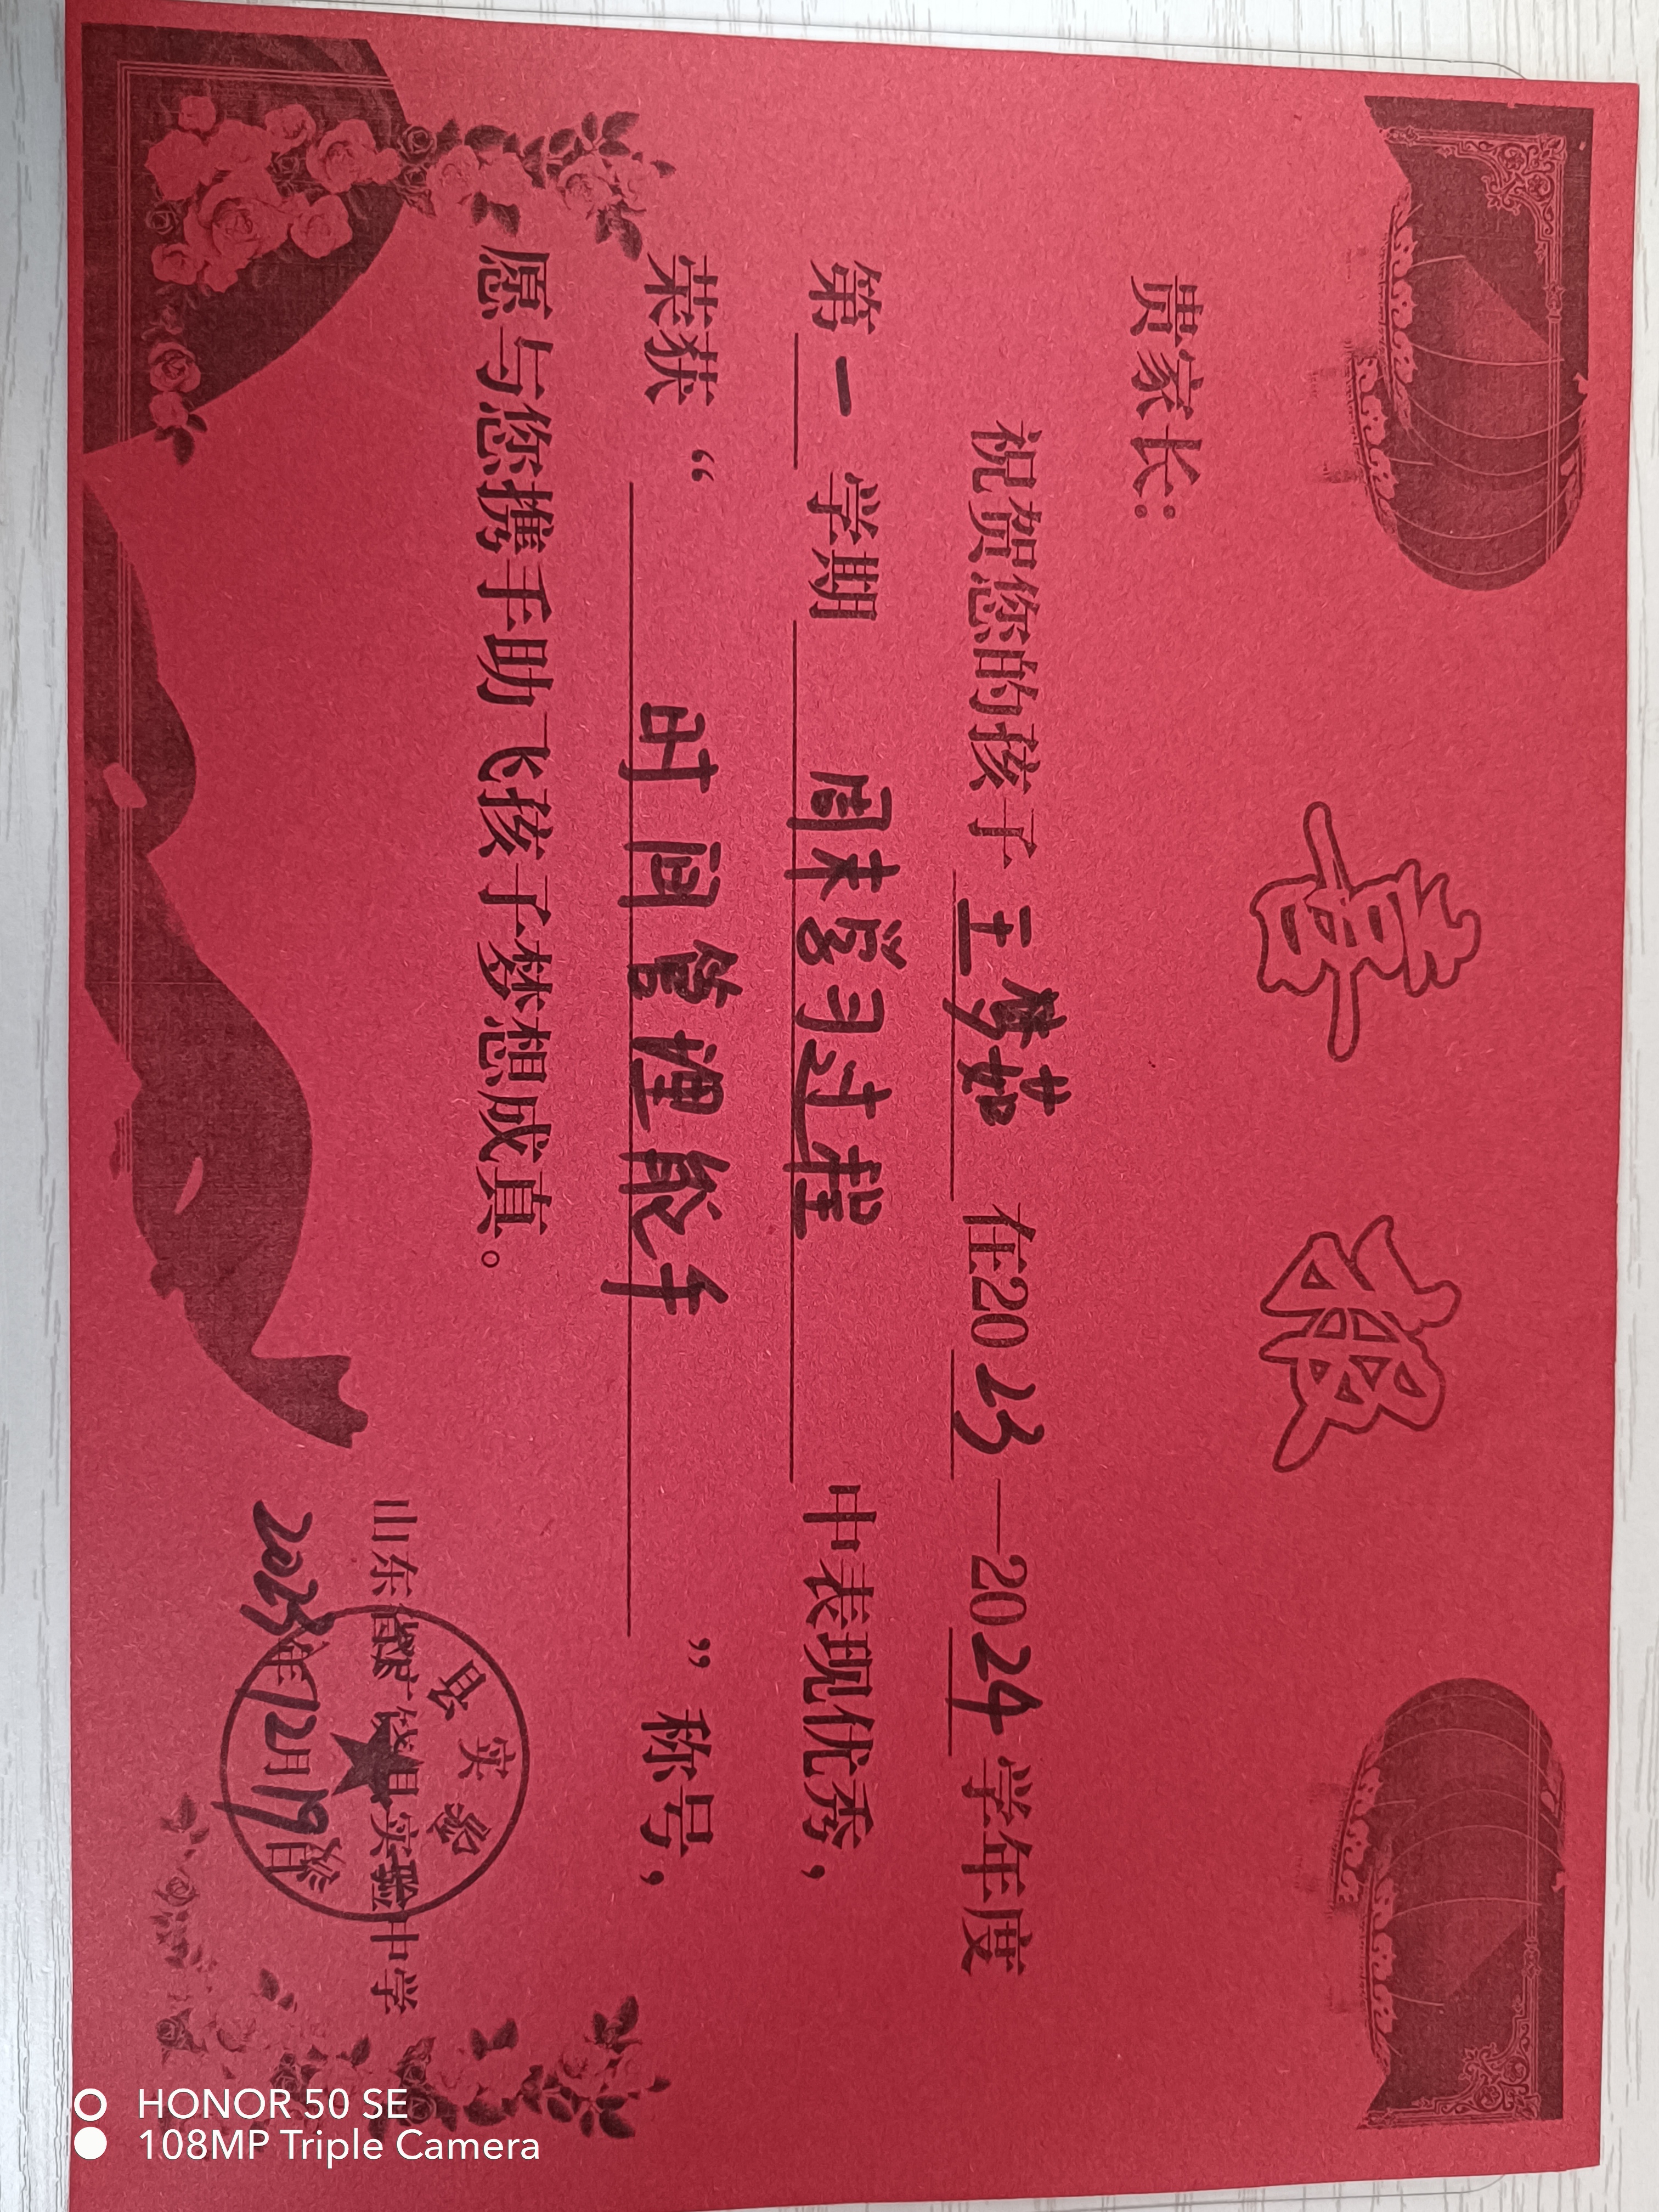 喜报
贵家长：
祝贺您的孩子 王梦茹 在2023—2024学年度
第一学期 周末学习过程 中表现优秀，
荣获“时间管理能手”称号，
愿与您携手助飞孩子梦想成真。
山东省 县实验中学
2023年12月19日
县实验
HONOR 50 SE
108MP Triple Camera